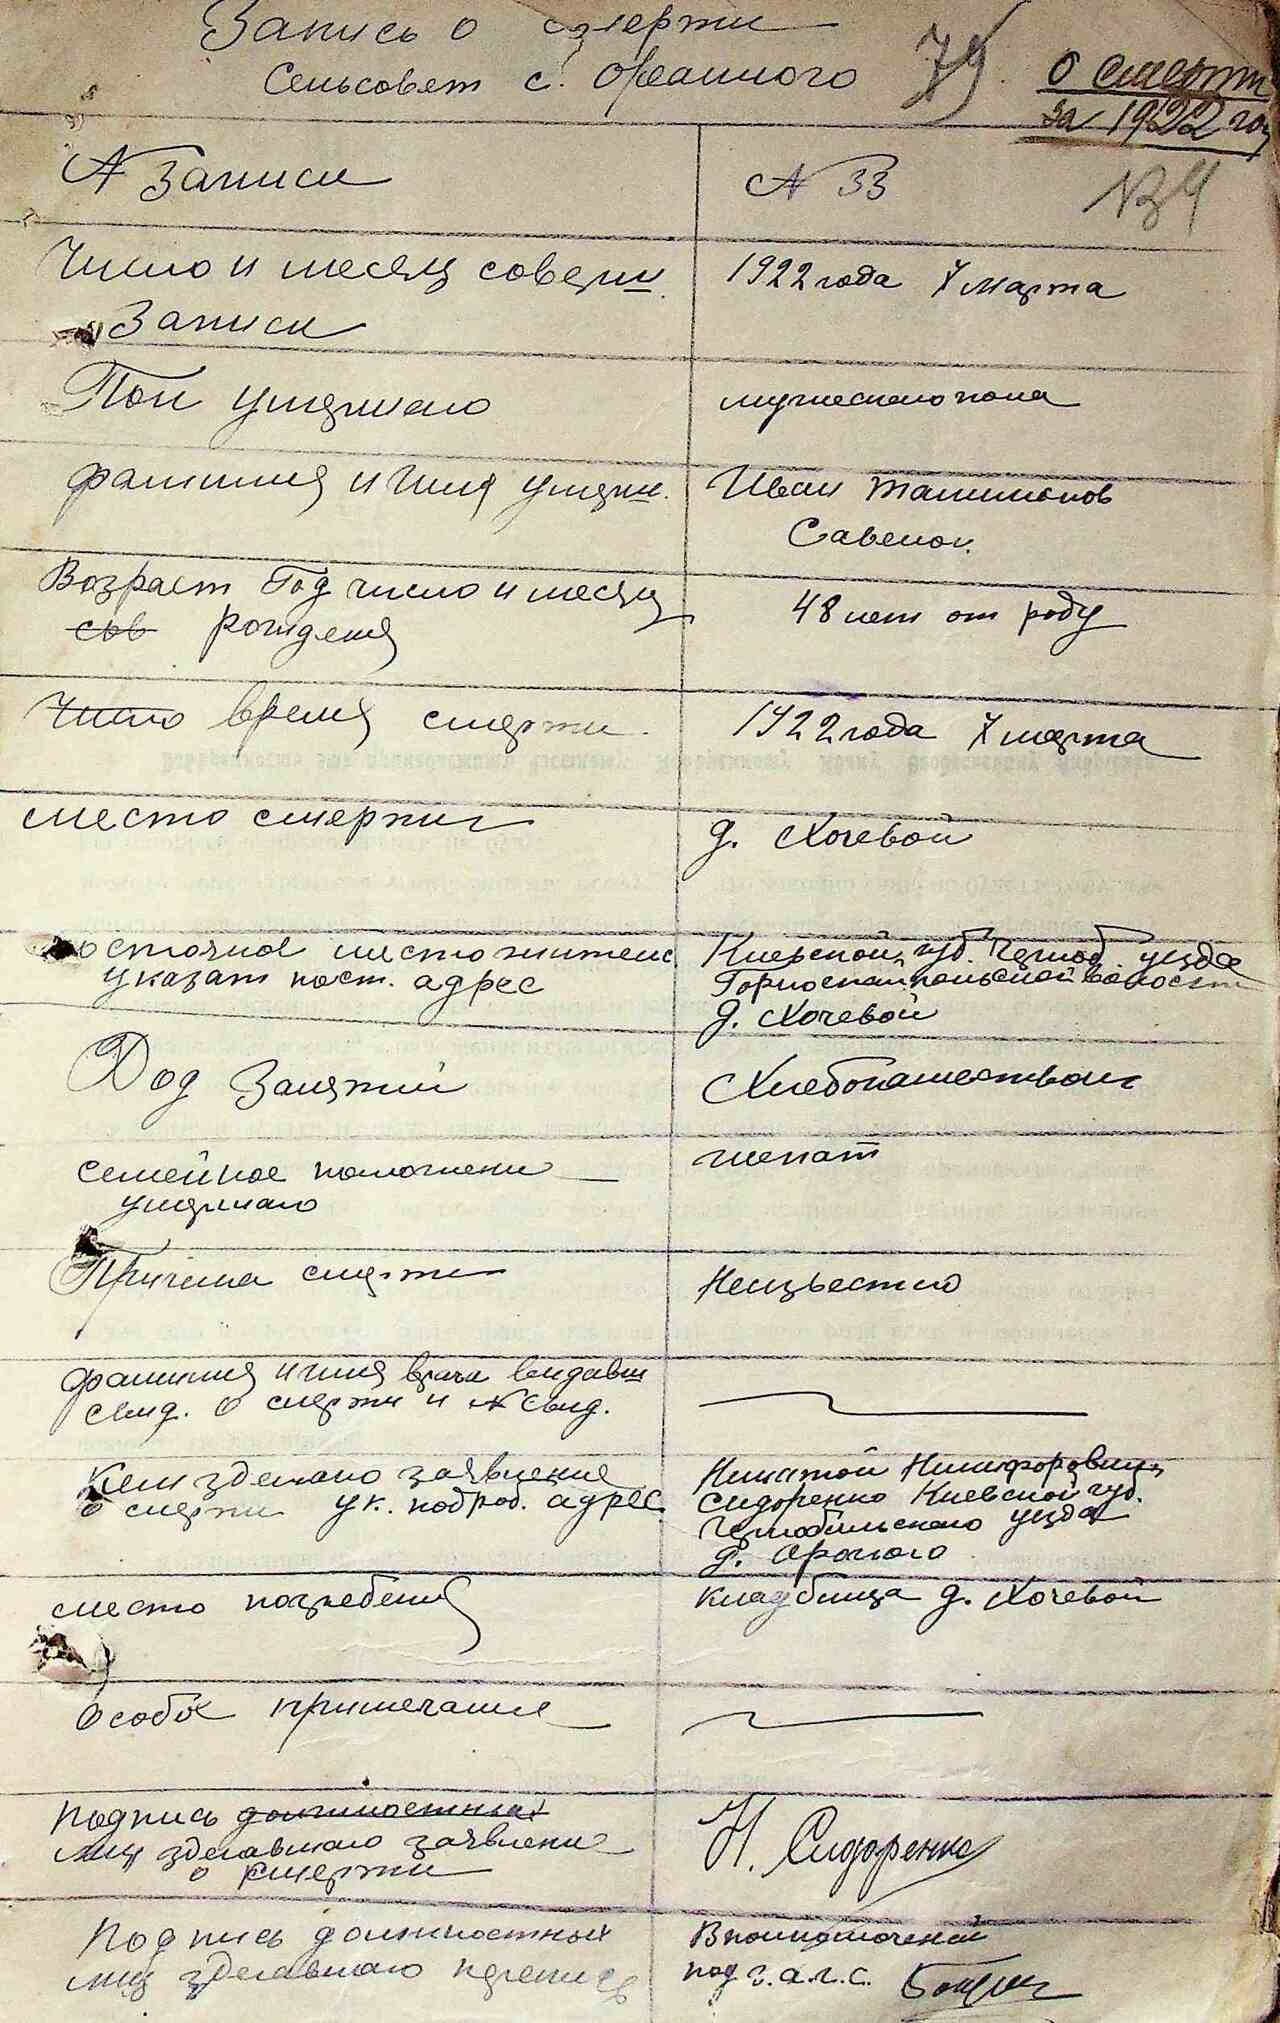 Запись о смерти
Сельсовет с. Ораанного
79
о смерти
за 1922 год
№ записи
№ 33
Число и месяц соверш.
Записи
1922 года 7 марта
Пол умершего
мужеского пола
фамилия и имя умерш.
Иван
Савенок.
Возраст Год число и месяц
рождения
48 лет от роду
Число время смерти.
1922 года 7 марта
место смерти
д. Хочевой
место жителс
указат пост. адрес
Киевской губ. Черноб. уезда
Горностайпольской волости
д. Хочевой
Род занятий
Хлебопашеством
семейное положени
умершаго
женат
Причина смерти
Неизвестно
фамилия и имя врача видавш
свид. о смерти и № свид.
Кем зделано заявление
о смерти ук. подроб. адрес.
Никифорович
Сидоренко Киевской губ.
Чернобильского уезда
д.
место погребения
кладбища д. Хочевой
Особые примечания
подпись должностных
лиц зделавшаго заявление
о смерти
Н. Сидоренко
Подпись должностных
лиц зделавшаго
под з.а.г.с.